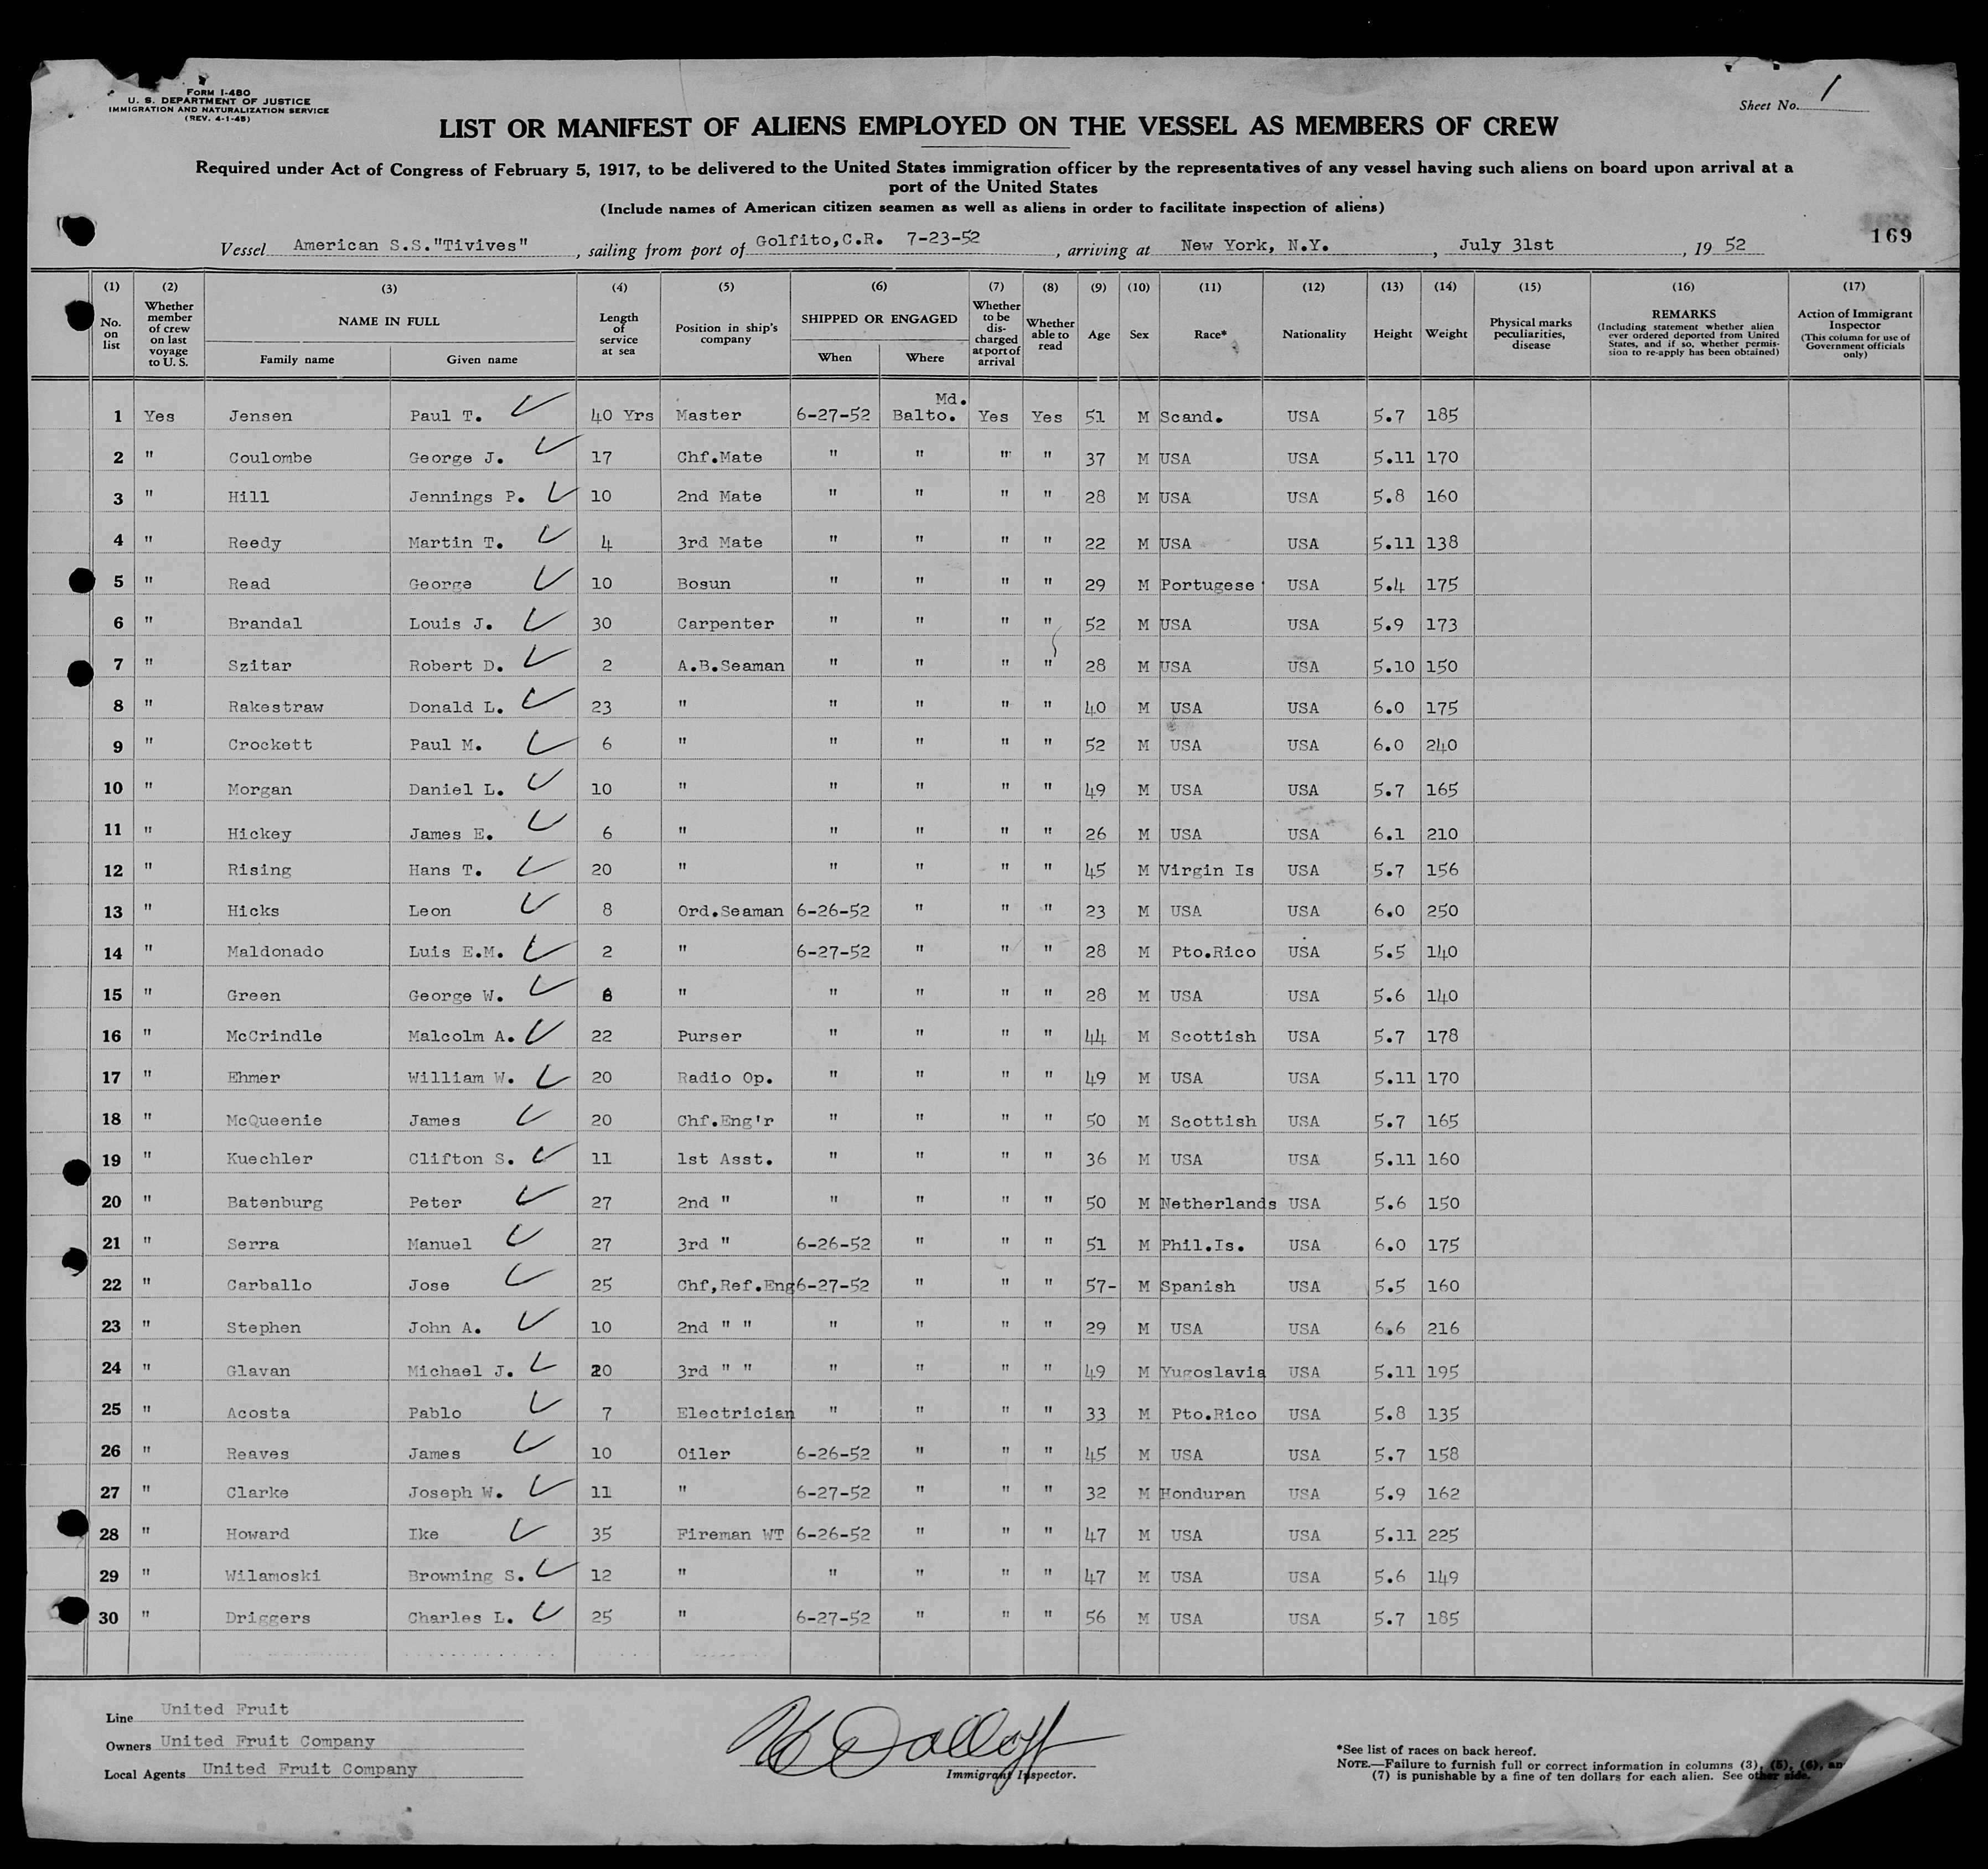 FORM I-480
U. S. DEPARTMENT OF JUSTICE
IMMIGRATION AND NATURALIZATION SERVICE
(REV. 4-1-48)
Sheet No. 1
LIST OR MANIFEST OF ALIENS EMPLOYED ON THE VESSEL AS MEMBERS OF CREW
Required under Act of Congress of February 5, 1917, to be delivered to the United States immigration officer by the representatives of any vessel having such aliens on board upon arrival at a
port of the United States
(Include names of American citizen seamen as well as aliens in order to facilitate inspection of aliens)
169
Vessel American S.S."Tivives", sailing from port of Golfito,C.R. 7-23-52, arriving at New York, N.Y., July 31st, 19 52
(1) No. on list
(2) Whether member of crew on last voyage to U. S.
(3) NAME IN FULL
Family name Given name
(4) Length of service at sea
(5) Position in ship's company
(6) SHIPPED OR ENGAGED
When Where
(7) Whether to be discharged at port of arrival
(8) Whether able to read
(9) Age
(10) Sex
(11) Race*
(12) Nationality
(13) Height
(14) Weight
(15) Physical marks peculiarities, disease
(16) REMARKS (Including statement whether alien ever ordered deported from United States, and if so, whether permission to re-apply has been obtained)
(17) Action of Immigrant Inspector (This column for use of Government officials only)
1 Yes Jensen Paul T. 40 Yrs Master 6-27-52 Md. Balto. Yes Yes 51 M Scand. USA 5.7 185
2 " Coulombe George J. 17 Chf.Mate " " " " 37 M USA USA 5.11 170
3 " Hill Jennings P. 10 2nd Mate " " " " 28 M USA USA 5.8 160
4 " Reedy Martin T. 4 3rd Mate " " " " 22 M USA USA 5.11 138
5 " Read George 10 Bosun " " " " 29 M Portugese USA 5.4 175
6 " Brandal Louis J. 30 Carpenter " " " " 52 M USA USA 5.9 173
7 " Szitar Robert D. 2 A.B.Seaman " " " " 28 M USA USA 5.10 150
8 " Rakestraw Donald L. 23 " " " " " 40 M USA USA 6.0 175
9 " Crockett Paul M. 6 " " " " " 52 M USA USA 6.0 240
10 " Morgan Daniel L. 10 " " " " " 49 M USA USA 5.7 165
11 " Hickey James E. 6 " " " " " 26 M USA USA 6.1 210
12 " Rising Hans T. 20 " " " " " 45 M Virgin Is USA 5.7 156
13 " Hicks Leon 8 Ord.Seaman 6-26-52 " " " 23 M USA USA 6.0 250
14 " Maldonado Luis E.M. 2 " 6-27-52 " " " 28 M Pto.Rico USA 5.5 140
15 " Green George W. " " " " " 28 M USA USA 5.6 140
16 " McCrindle Malcolm A. 22 Purser " " " " 44 M Scottish USA 5.7 178
17 " Ehmer William W. 20 Radio Op. " " " " 49 M USA USA 5.11 170
18 " McQueenie James 20 Chf.Eng'r " " " " 50 M Scottish USA 5.7 165
19 " Kuechler Clifton S. 11 1st Asst. " " " " 36 M USA USA 5.11 160
20 " Batenburg Peter 27 2nd " " " " " 50 M Netherlands USA 5.6 150
21 " Serra Manuel 27 3rd " 6-26-52 " " " 51 M Phil.Is. USA 6.0 175
22 " Carballo Jose 25 Chf,Ref.Eng 6-27-52 " " " 57- M Spanish USA 5.5 160
23 " Stephen John A. 10 2nd " " " " " " 29 M USA USA 6.6 216
24 " Glavan Michael J. 20 3rd " " " " " " 49 M Yugoslavia USA 5.11 195
25 " Acosta Pablo 7 Electrician " " " " 33 M Pto.Rico USA 5.8 135
26 " Reaves James 10 Oiler 6-26-52 " " " 45 M USA USA 5.7 158
27 " Clarke Joseph W. 11 " 6-27-52 " " " 32 M Honduran USA 5.9 162
28 " Howard Ike 35 Fireman WT 6-26-52 " " " 47 M USA USA 5.11 225
29 " Wilamoski Browning S. 12 " " " " " 47 M USA USA 5.6 149
30 " Driggers Charles L. 25 " 6-27-52 " " " 56 M USA USA 5.7 185
Line United Fruit
Owners United Fruit Company
Local Agents United Fruit Company
Immigrant Inspector.
*See list of races on back hereof.
NOTE.—Failure to furnish full or correct information in columns (3), (5), (6), an
(7) is punishable by a fine of ten dollars for each alien. See other side.